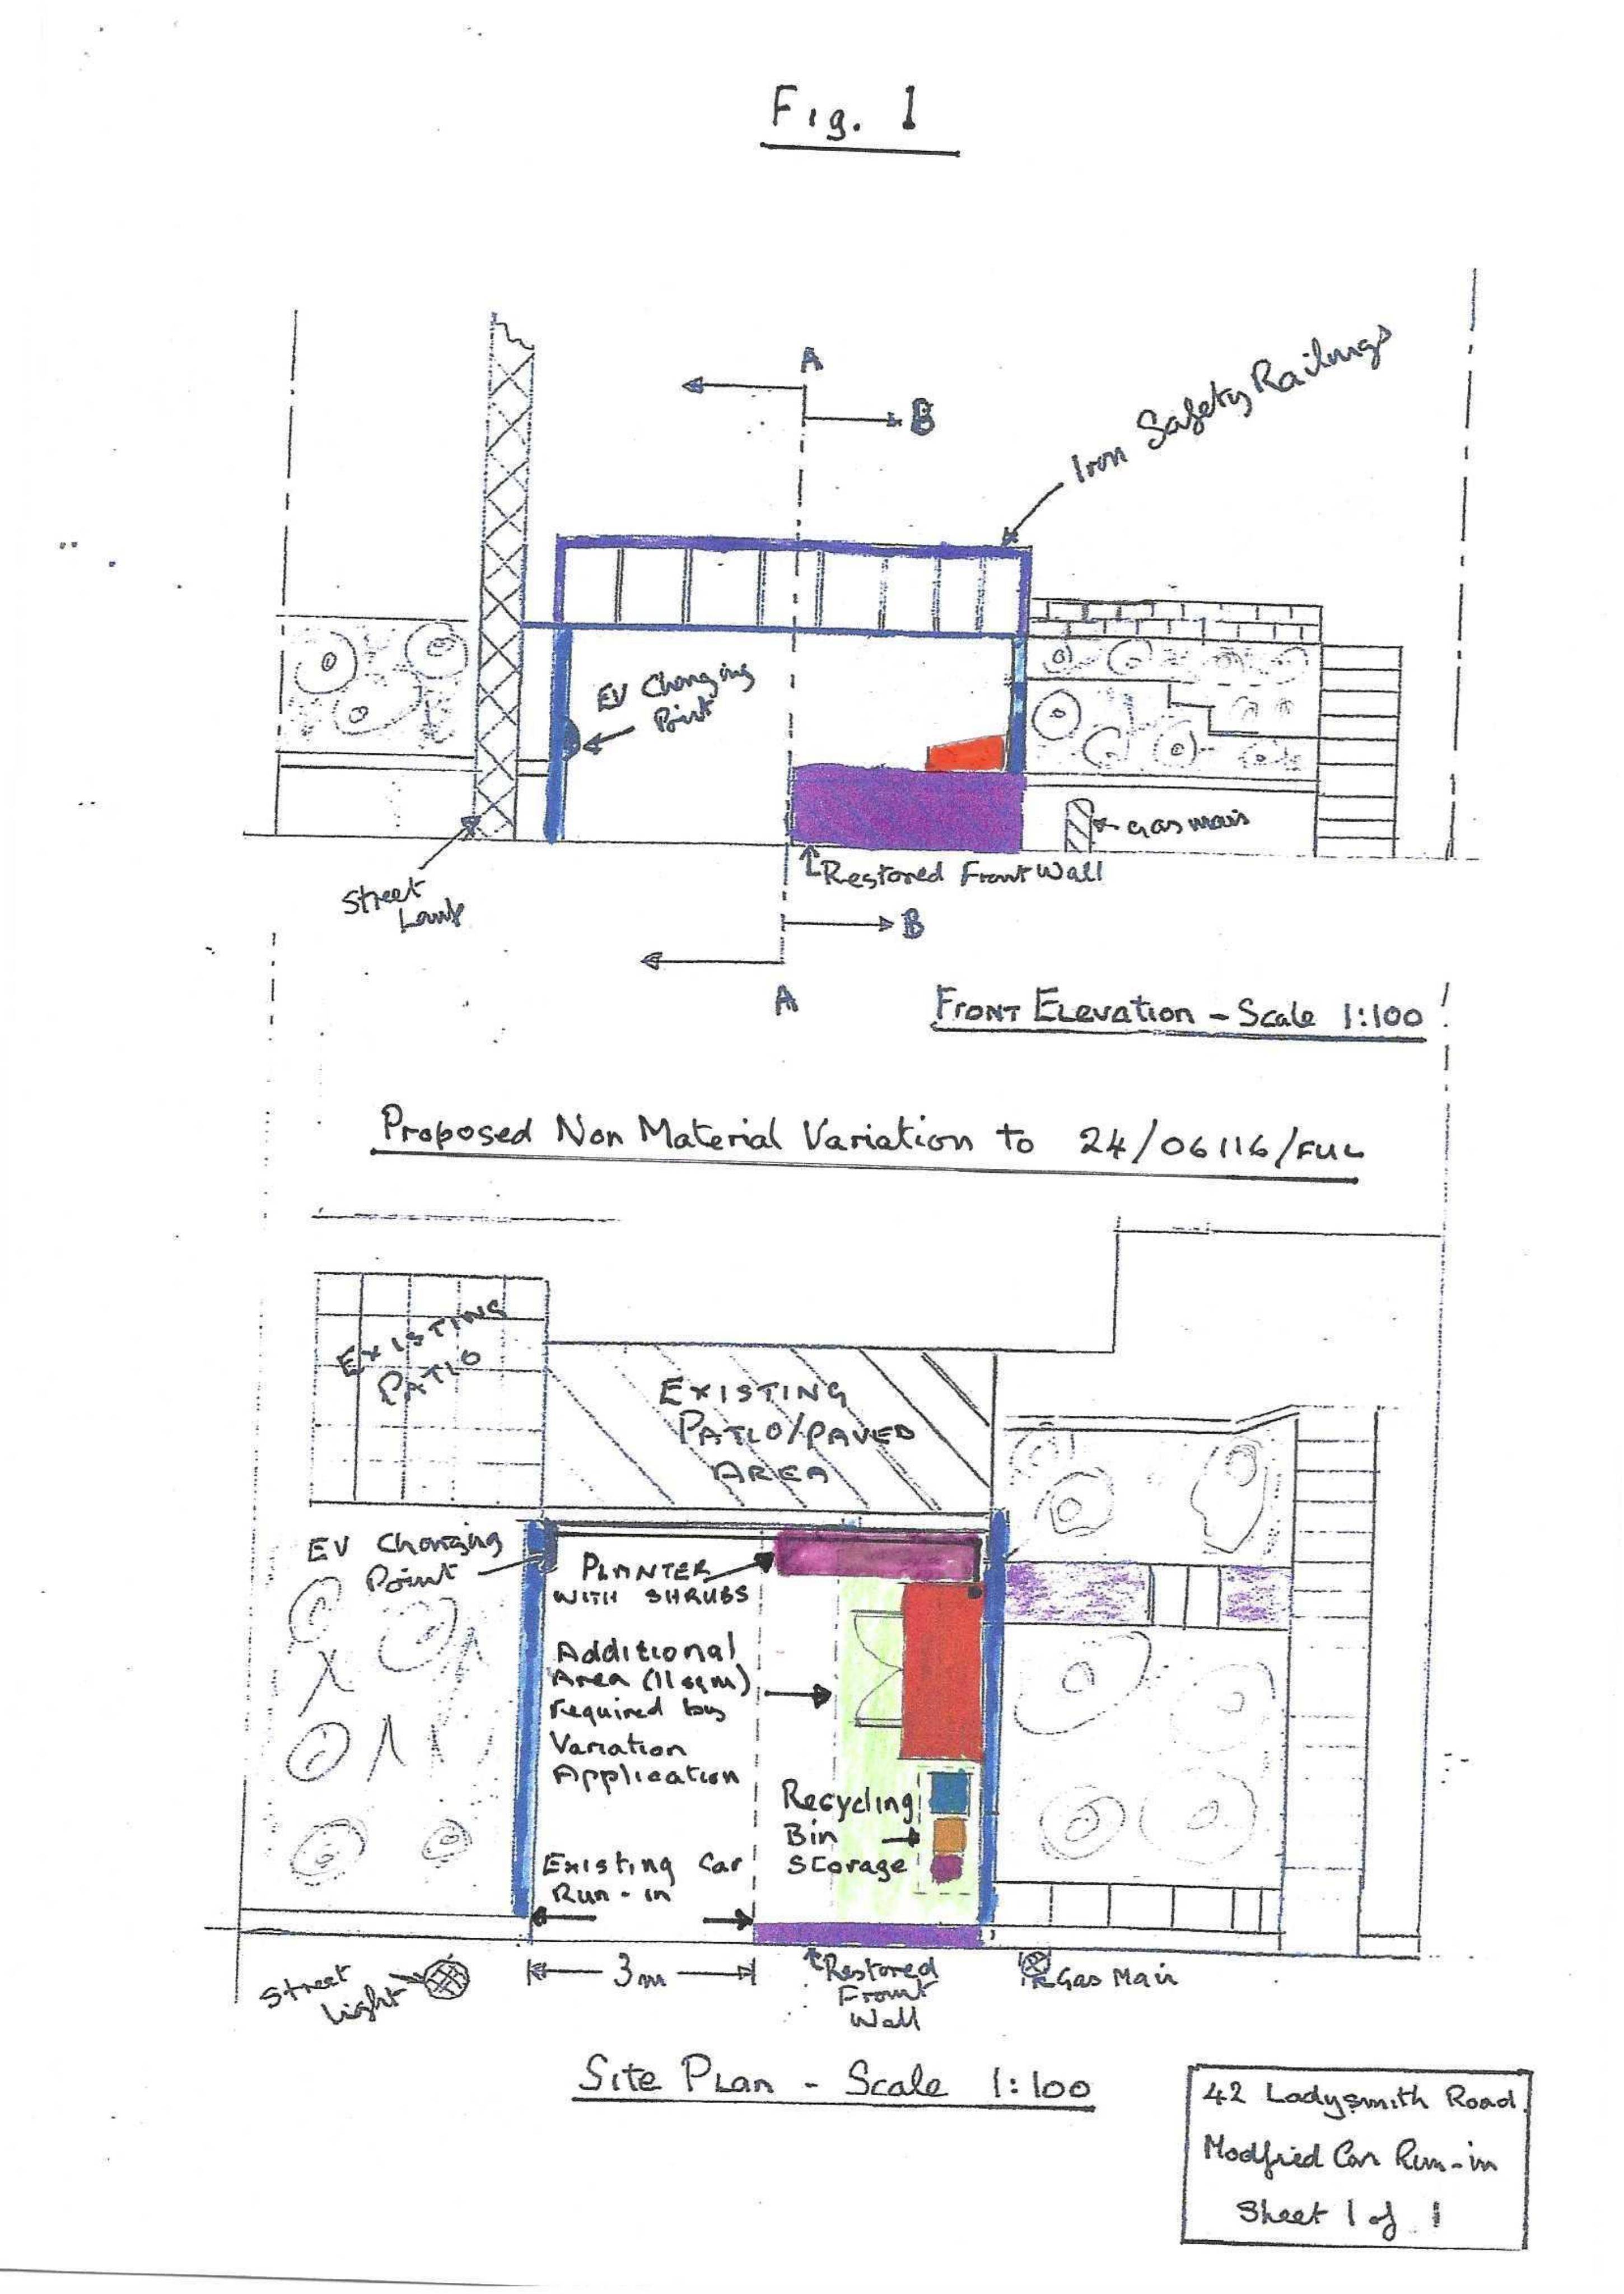 Fig. 1
A
B
Iron Safety Railings
EV Charging
Point
Gas main
Restored Front Wall
Street
Lamp
B
A
Front Elevation - Scale 1:100
Proposed Non Material Variation to 24/06116/FUL
EXISTING
PATIO
EXISTING
PATIO/PAVED
AREA
EV Charging
Point
PLANTER
WITH SHRUBS
Additional
Area (11 sqm)
required by
Variation
Application
Recycling
Bin
Storage
Existing Car
Run-in
3m
Street
Light
Restored
Front
Wall
Gas Main
Site Plan - Scale 1:100
42 Ladysmith Road
Modfied Car Run-in
Sheet 1 of 1